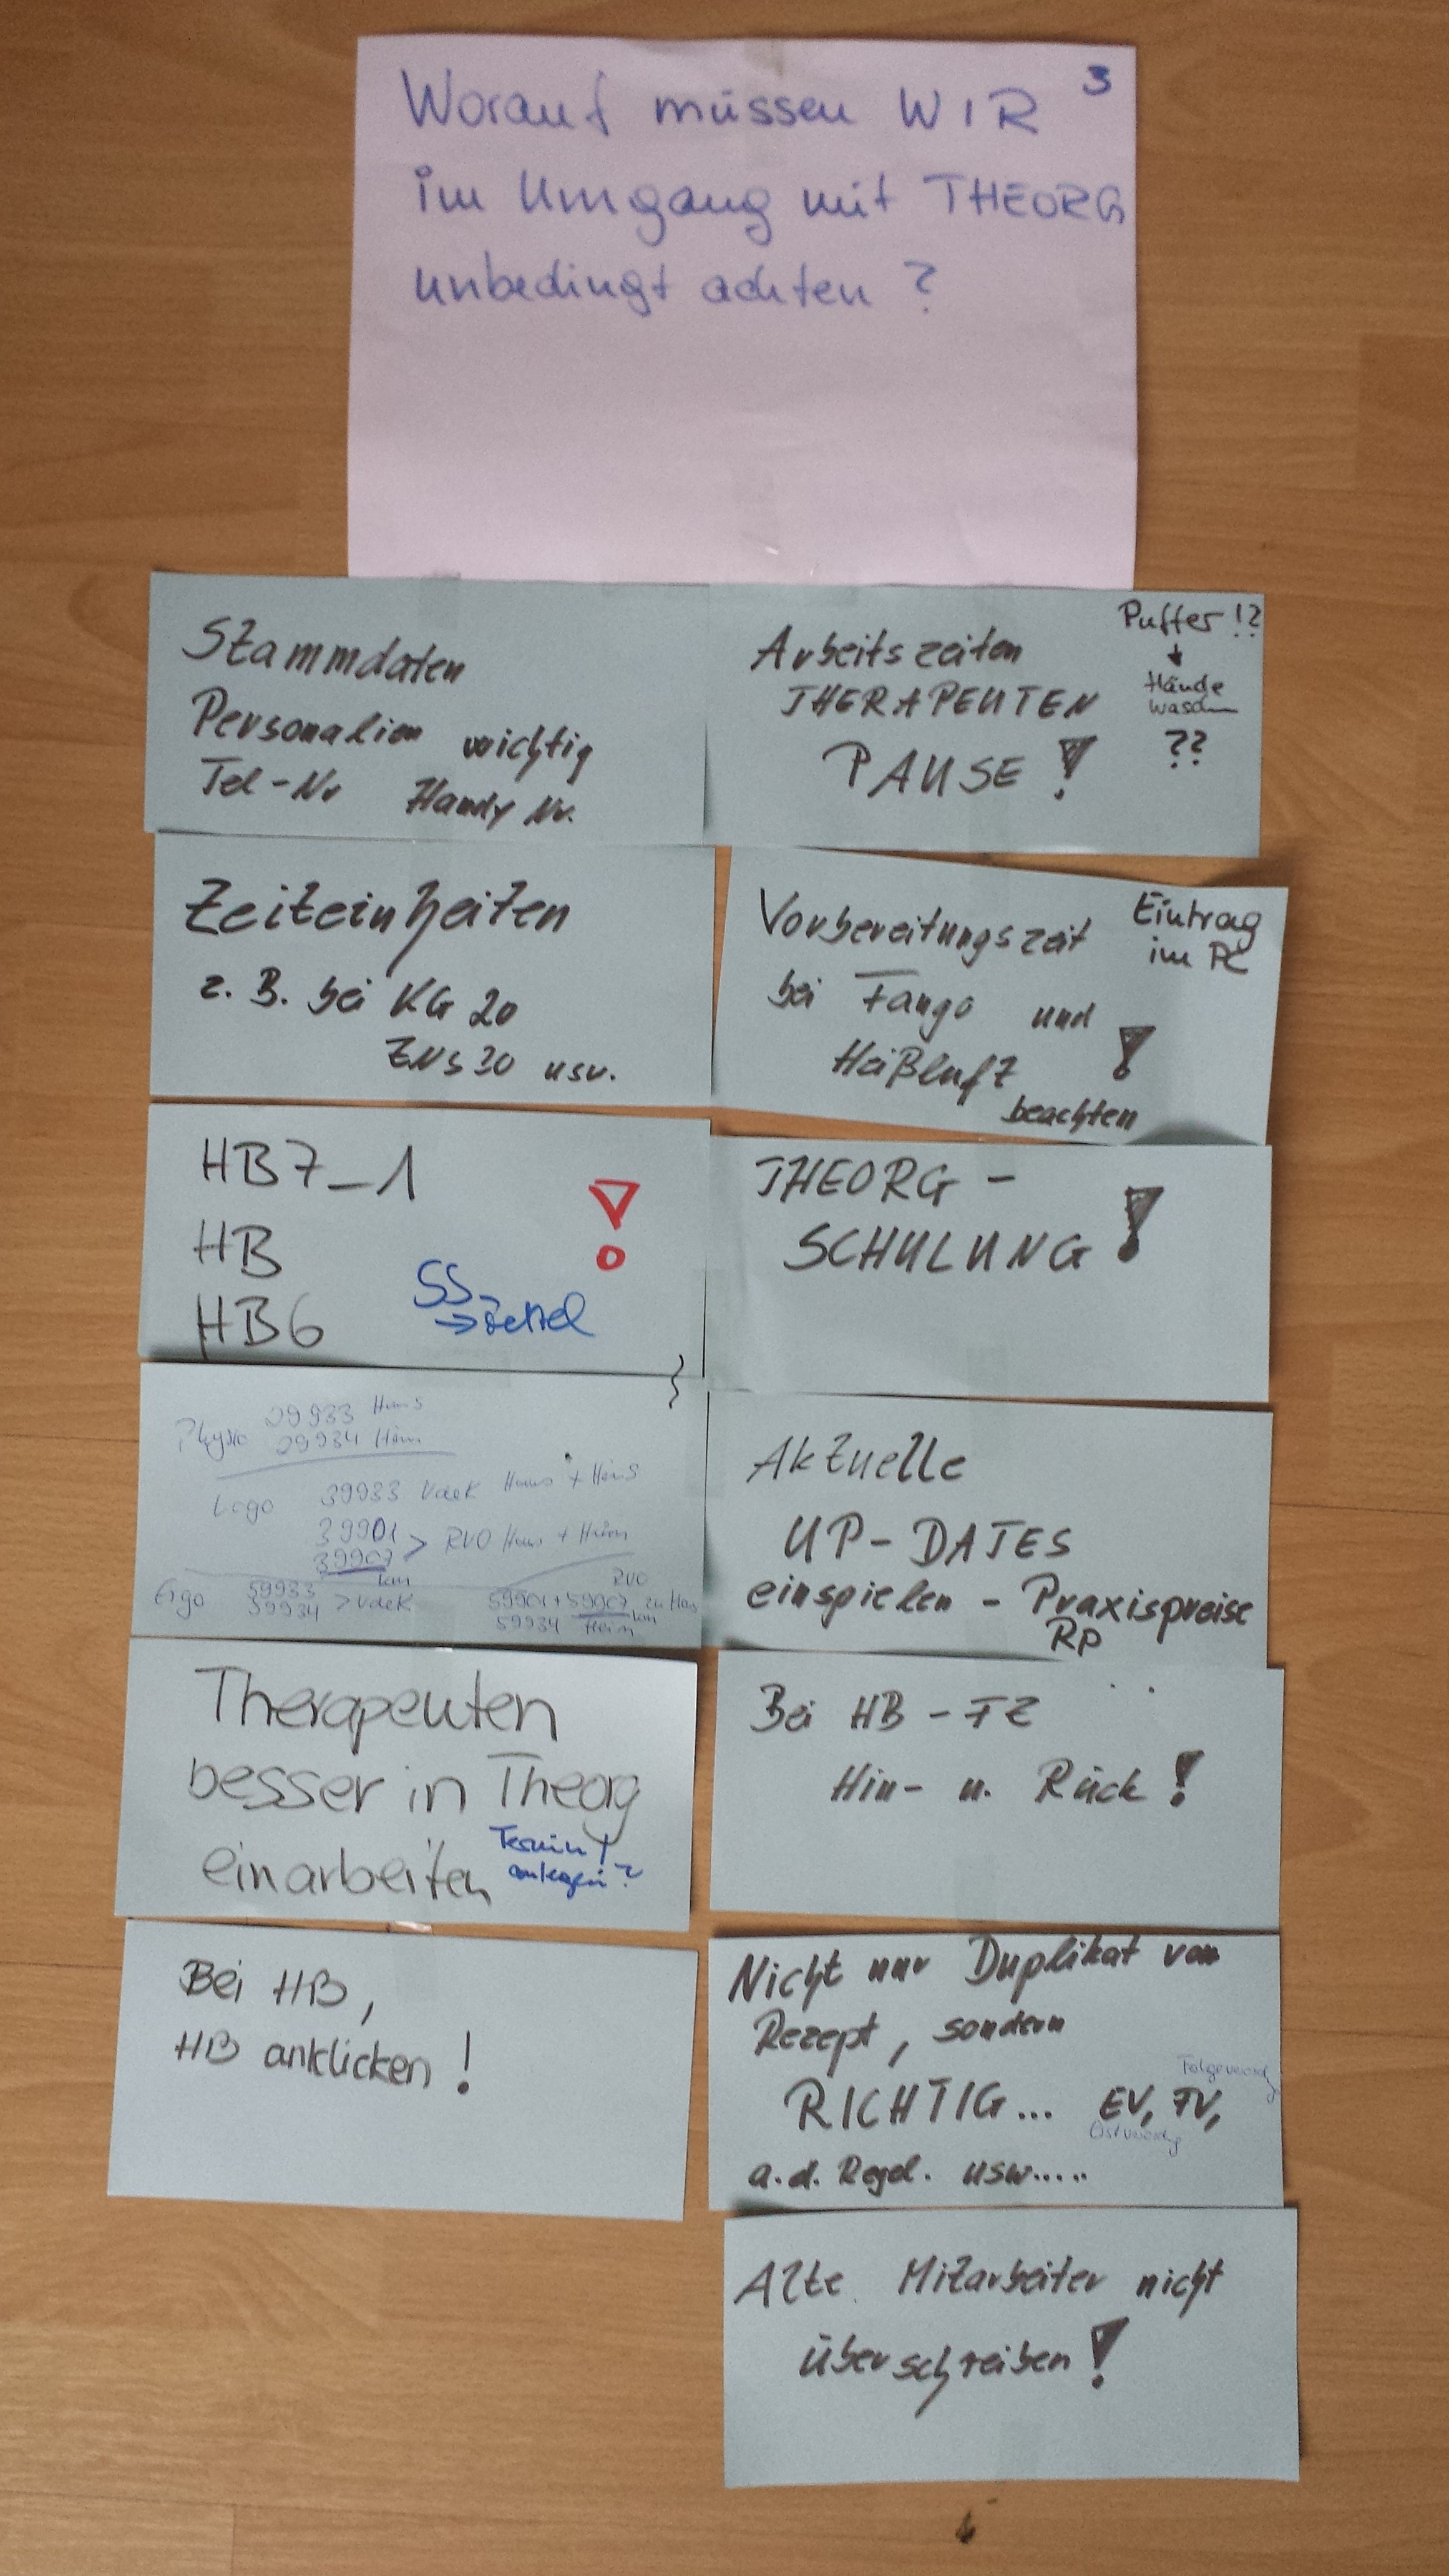 3
Worauf müssen WIR
im Umgang mit THEORG
unbedingt achten ?
Stammdaten
Personalien wichtig
Tel-Nr Handy Nr.
Arbeitszeiten
THERAPEUTEN
PAUSE !
Puffer !?
↓
Hände
waschen
??
Zeiteinheiten
z. B. bei KG 20
ZNS 30 usw.
Vorbereitungszeit
bei Fango und
Heißluft !
beachten
Eintrag
im PC
HB7_1
HB
HB6
!
SS
→ Zettel
THEORG -
SCHULUNG !
Physio 29933 Haus
29934 Heim
Logo 39933 Vdek Haus + Heim
39901
39907 > RVO Haus + Heim
km
Ergo 59933
59934 > Vdek
RVO
59901 + 59907 zu Haus
km
59934 Heim
Aktuelle
UP-DATES
einspielen - Praxispreise
RP
Therapeuten
besser in Theorg
einarbeiten
Termin !
anlegen ?
Bei HB - FZ
Hin- u. Rück !
Bei HB,
HB anklicken !
Nicht nur Duplikat von
Rezept, sondern
RICHTIG... EV, FV,
a.d. Regel. usw.....
Alte Mitarbeiter nicht
überschreiben !